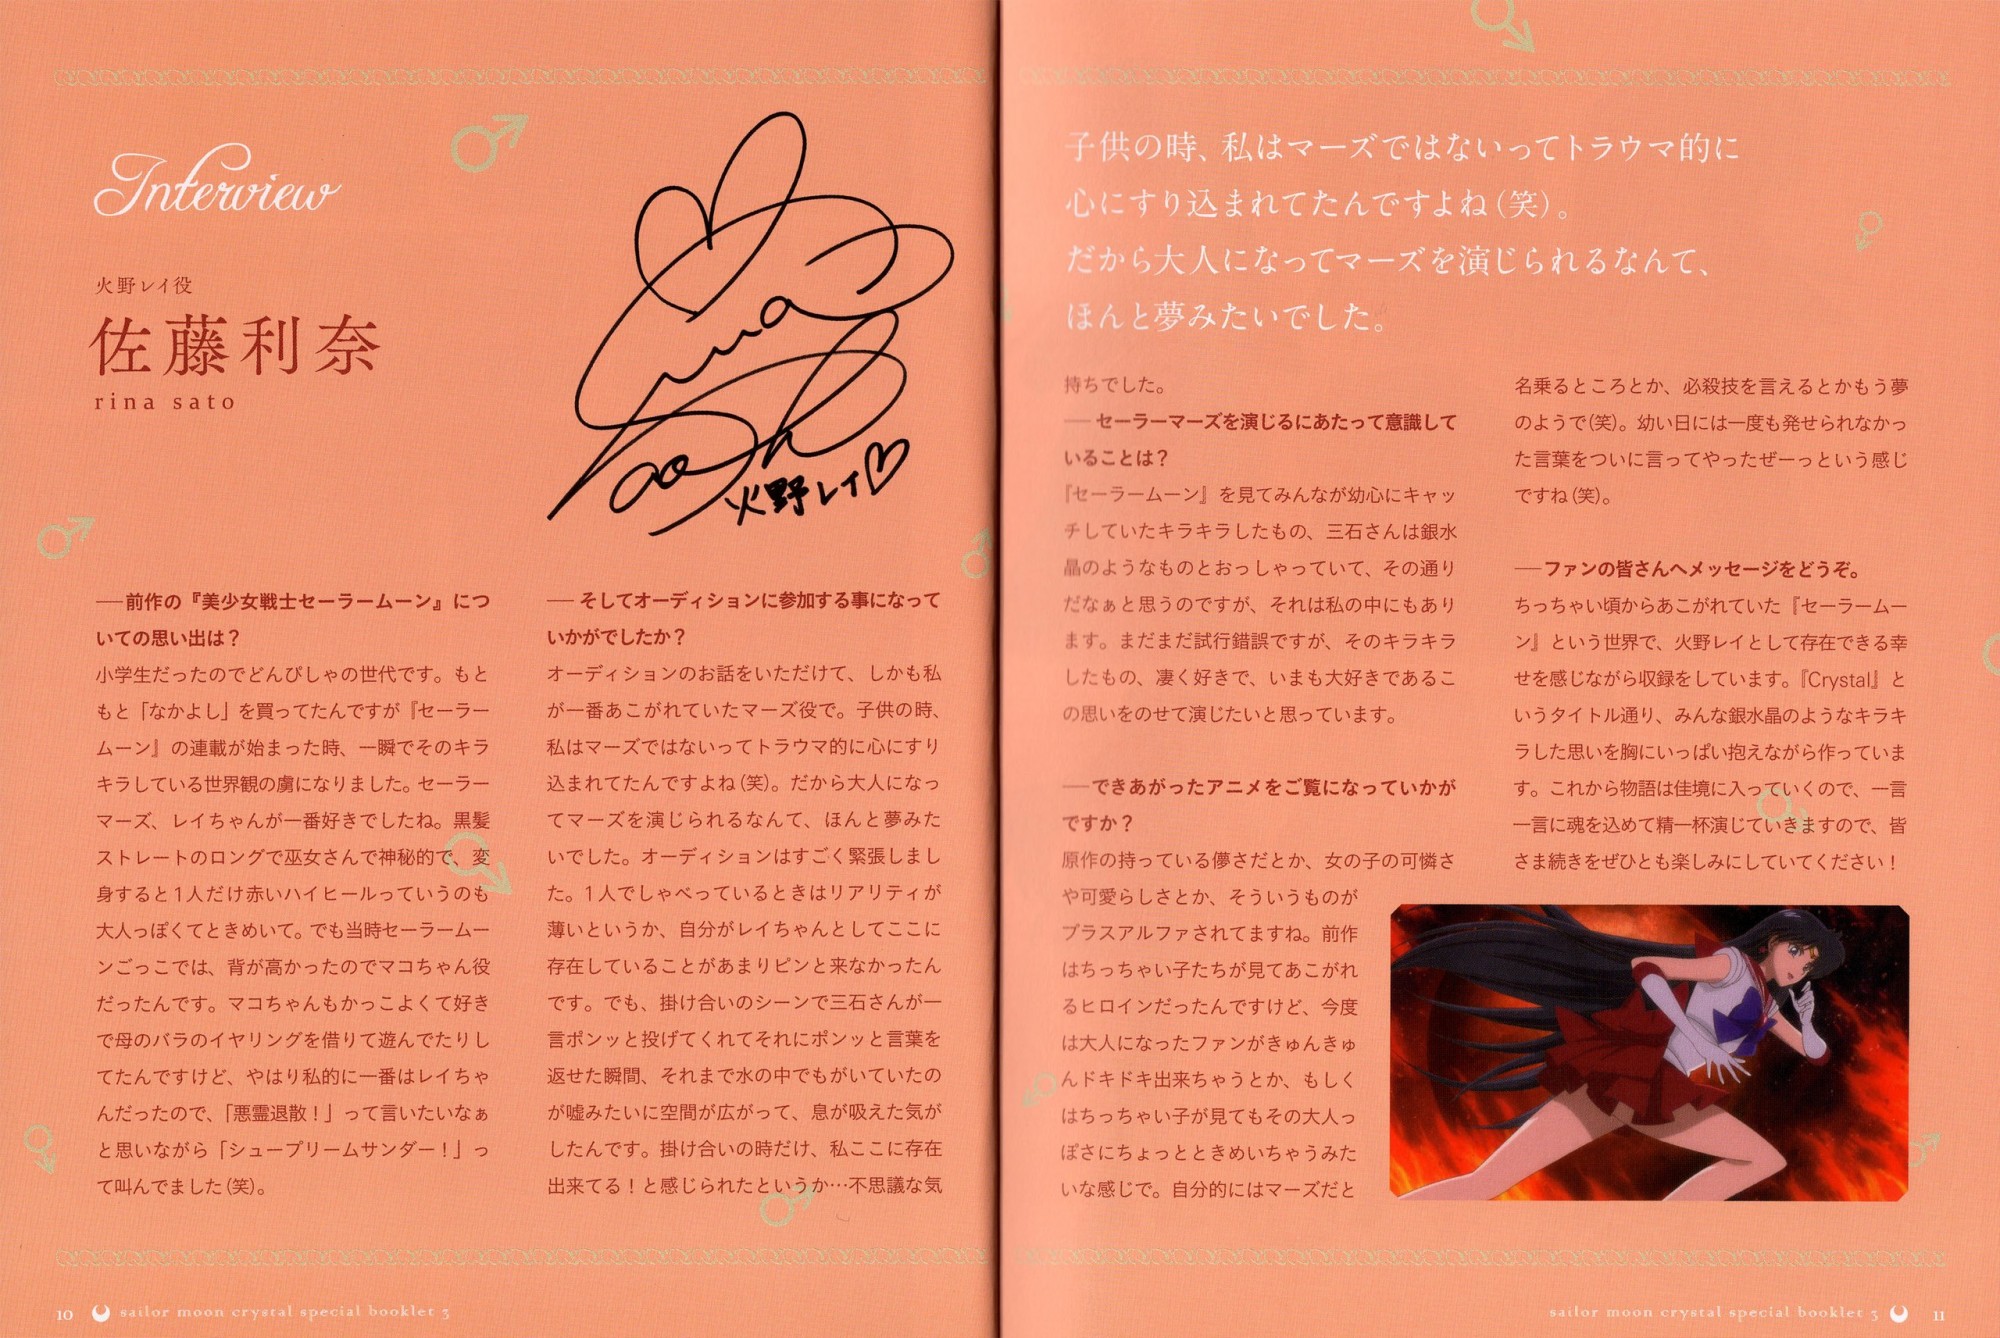 Interview
火野レイ役
佐藤利奈
rina sato
火野レイ♡
――前作の『美少女戦士セーラームーン』につ
いての思い出は？
小学生だったのでどんぴしゃの世代です。もと
もと「なかよし」を買ってたんですが『セーラー
ムーン』の連載が始まった時、一瞬でそのキラ
キラしている世界観の虜になりました。セーラー
マーズ、レイちゃんが一番好きでしたね。黒髪
ストレートのロングで巫女さんで神秘的で、変
身すると1人だけ赤いハイヒールっていうのも
大人っぽくてときめいて。でも当時セーラームー
ンごっこでは、背が高かったのでマコちゃん役
だったんです。マコちゃんもかっこよくて好き
で母のバラのイヤリングを借りて遊んでたりし
てたんですけど、やはり私的に一番はレイちゃ
んだったので、「悪霊退散！」って言いたいなぁ
と思いながら「シュープリームサンダー！」っ
て叫んでました(笑)。
――そしてオーディションに参加する事になって
いかがでしたか？
オーディションのお話をいただけて、しかも私
が一番あこがれていたマーズ役で。子供の時、
私はマーズではないってトラウマ的に心にすり
込まれてたんですよね(笑)。だから大人になっ
てマーズを演じられるなんて、ほんと夢みた
いでした。オーディションはすごく緊張しまし
た。1人でしゃべっているときはリアリティが
薄いというか、自分がレイちゃんとしてここに
存在していることがあまりピンと来なかったん
です。でも、掛け合いのシーンで三石さんが一
言ポンッと投げてくれてそれにポンッと言葉を
返せた瞬間、それまで水の中でもがいていたの
が嘘みたいに空間が広がって、息が吸えた気が
したんです。掛け合いの時だけ、私ここに存在
出来てる！と感じられたというか…不思議な気
10 sailor moon crystal special booklet 3
子供の時、私はマーズではないってトラウマ的に
心にすり込まれてたんですよね(笑)。
だから大人になってマーズを演じられるなんて、
ほんと夢みたいでした。
持ちでした。
――セーラーマーズを演じるにあたって意識して
いることは？
『セーラームーン』を見てみんなが幼心にキャッ
チしていたキラキラしたもの、三石さんは銀水
晶のようなものとおっしゃっていて、その通り
だなぁと思うのですが、それは私の中にもあり
ます。まだまだ試行錯誤ですが、そのキラキラ
したもの、凄く好きで、いまも大好きであるこ
の思いをのせて演じたいと思っています。
――できあがったアニメをご覧になっていかが
ですか？
原作の持っている儚さだとか、女の子の可憐さ
や可愛らしさとか、そういうものが
プラスアルファされてますね。前作
はちっちゃい子たちが見てあこがれ
るヒロインだったんですけど、今度
は大人になったファンがきゅんきゅ
んドキドキ出来ちゃうとか、もしく
はちっちゃい子が見てもその大人っ
ぽさにちょっとときめいちゃうみた
いな感じで。自分的にはマーズだと
名乗るところとか、必殺技を言えるとかもう夢
のようで(笑)。幼い日には一度も発せられなかっ
た言葉をついに言ってやったぜーっという感じ
ですね(笑)。
――ファンの皆さんへメッセージをどうぞ。
ちっちゃい頃からあこがれていた『セーラームー
ン』という世界で、火野レイとして存在できる幸
せを感じながら収録をしています。『Crystal』と
いうタイトル通り、みんな銀水晶のようなキラキ
ラした思いを胸にいっぱい抱えながら作っていま
す。これから物語は佳境に入っていくので、一言
一言に魂を込めて精一杯演じていきますので、皆
さま続きをぜひとも楽しみにしていてください！
sailor moon crystal special booklet 3 11